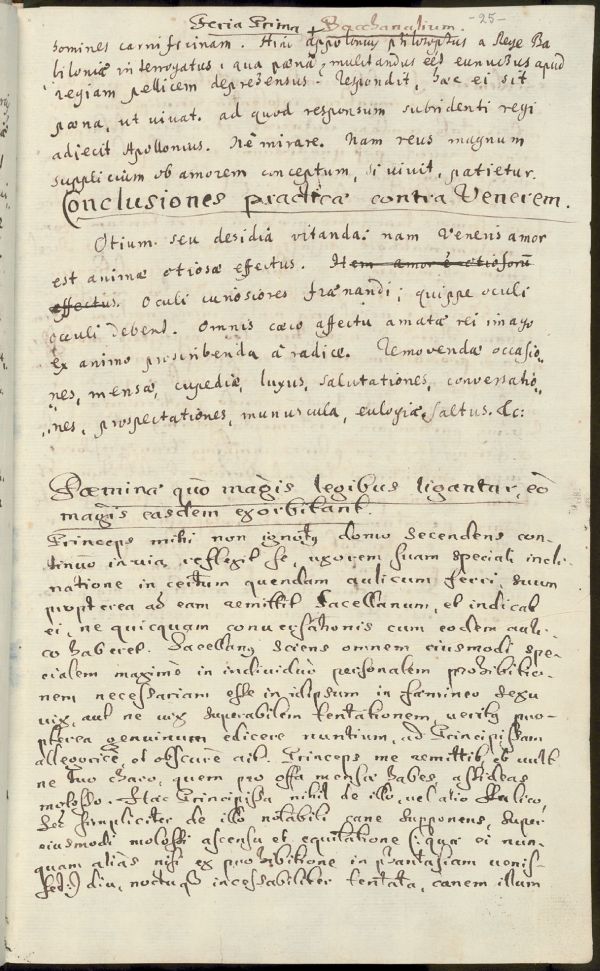 Feria Prima Bacchanalium. -25-
homines carnificinam. Hinc Appolonius philosophus a Rege Ba
biloniæ interrogatus, qua pœna mulctandus eēt eunuchus apud
regiam pellicem deprehensus. Respondit, hæc ei sit
pæna, ut vivat. ad quod responsum subridenti regi
adjecit Apollonius. Nē mirare. Nam reus magnum
supplicium ob amorem conceptum, si vivit, patietur.
Conclusiones practicæ contra Venerem.
Otium seu desidia vitanda: nam Veneris amor
est animæ otiosæ effectus. Item amor ē otiosorū
effectus. Oculi curiosiores frænandi; quippe oculi
occuli debent. Omnis cæco affectu amatæ rei imago
ex animo proscribenda â radice. Removendæ occasio„
„nes, mensæ, cupediæ, luxus, salutationes, conversatio„
„nes, prospectationes, munuscula, eulogiæ, saltus. &c:
Fæminæ quò magis legibus ligantur, eò
magis easdem exorbitant.
Princeps mihi non ignotꝰ domo decendens con-
tinuò in via reflexit se, uxorem suam speciali incli-
natione in certum quendam aulicum ferri, suum
propterea ad eam remittit Sacellanum, et indicat
ei, ne quicquam conversationis cum eodem auli-
co haberet. Sacellanꝰ sciens omnem eiusmodi spe-
cialem maximè in individuò personalem prohibitio-
nem necessariam esse in idipsum in fæmineo sexu
vix, aut ne vix superabilem tentationem, veritꝰ pro-
pterea genuinum edicere nuntium, ad Principissam
allegoricè, et obscurè ait. Princeps me remittit, et vult
ne tuo charo, quem pro offa mensæ habes, assideas
molosso. Hæc Principissa nihil de illo, vel alio Aulico,
sed simpliciter de illo notabili cane supponens, super
eiusmodi molossi ascensu et equitatione (: quæ ei nun-
quam aliàs nisi ex prohibitione in phantasiam venis-
set :) diu, noctuqȝ incessabiliter tentata, canem illum